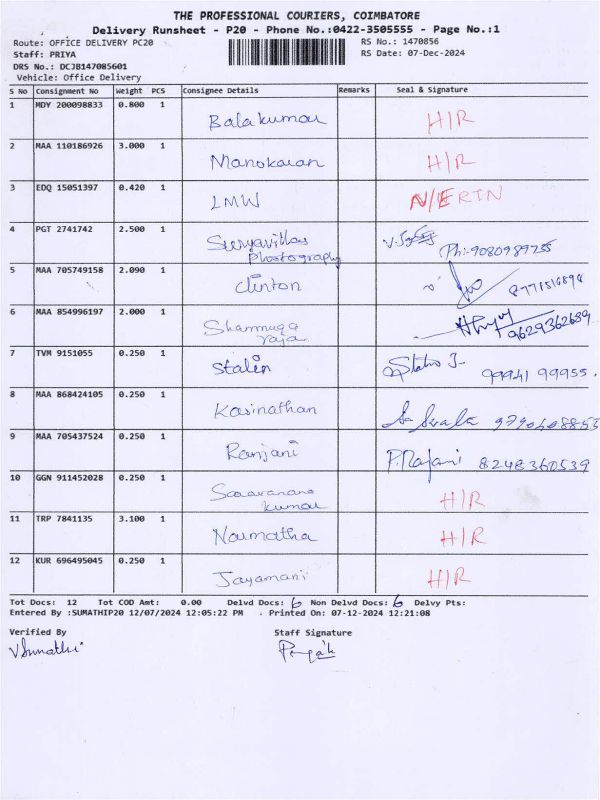 THE PROFESSIONAL COURIERS, COIMBATORE
Delivery Runsheet - P20 - Phone No.:0422-3505555 - Page No.:1
Route: OFFICE DELIVERY PC20
RS No.: 1470856
Staff: PRIYA
RS Date: 07-Dec-2024
DRS No.: DCJB147085601
Vehicle: Office Delivery
S No Consignment No Weight PCS Consignee Details Remarks Seal & Signature
1 MDY 200098833 0.800 1 Balakumar H/R
2 MAA 110186926 3.000 1 Manokaran H/R
3 EDQ 15051397 0.420 1 LMW N/E RTN
4 PGT 2741742 2.500 1 Suryavillas Photography Ph:-9080989755
5 MAA 705749158 2.090 1 Clinton 8771516898
6 MAA 854996197 2.000 1 Shanmuga raja 9629362689
7 TVM 9151055 0.250 1 Stalin 99941 99955.
8 MAA 868424105 0.250 1 Kasinathan
9 MAA 705437524 0.250 1 Ranjani P.Rajani 8248360539
10 GGN 911452028 0.250 1 Saravana kumar H/R
11 TRP 7841135 3.100 1 Narmatha H/R
12 KUR 696495045 0.250 1 Jayamani H/R
Tot Docs: 12 Tot COD Amt: 0.00 Delvd Docs: 6 Non Delvd Docs: 6 Delvy Pts:
Entered By :SUMATHIP20 12/07/2024 12:05:22 PM . Printed On: 07-12-2024 12:21:08
Verified By Staff Signature
VSumathi